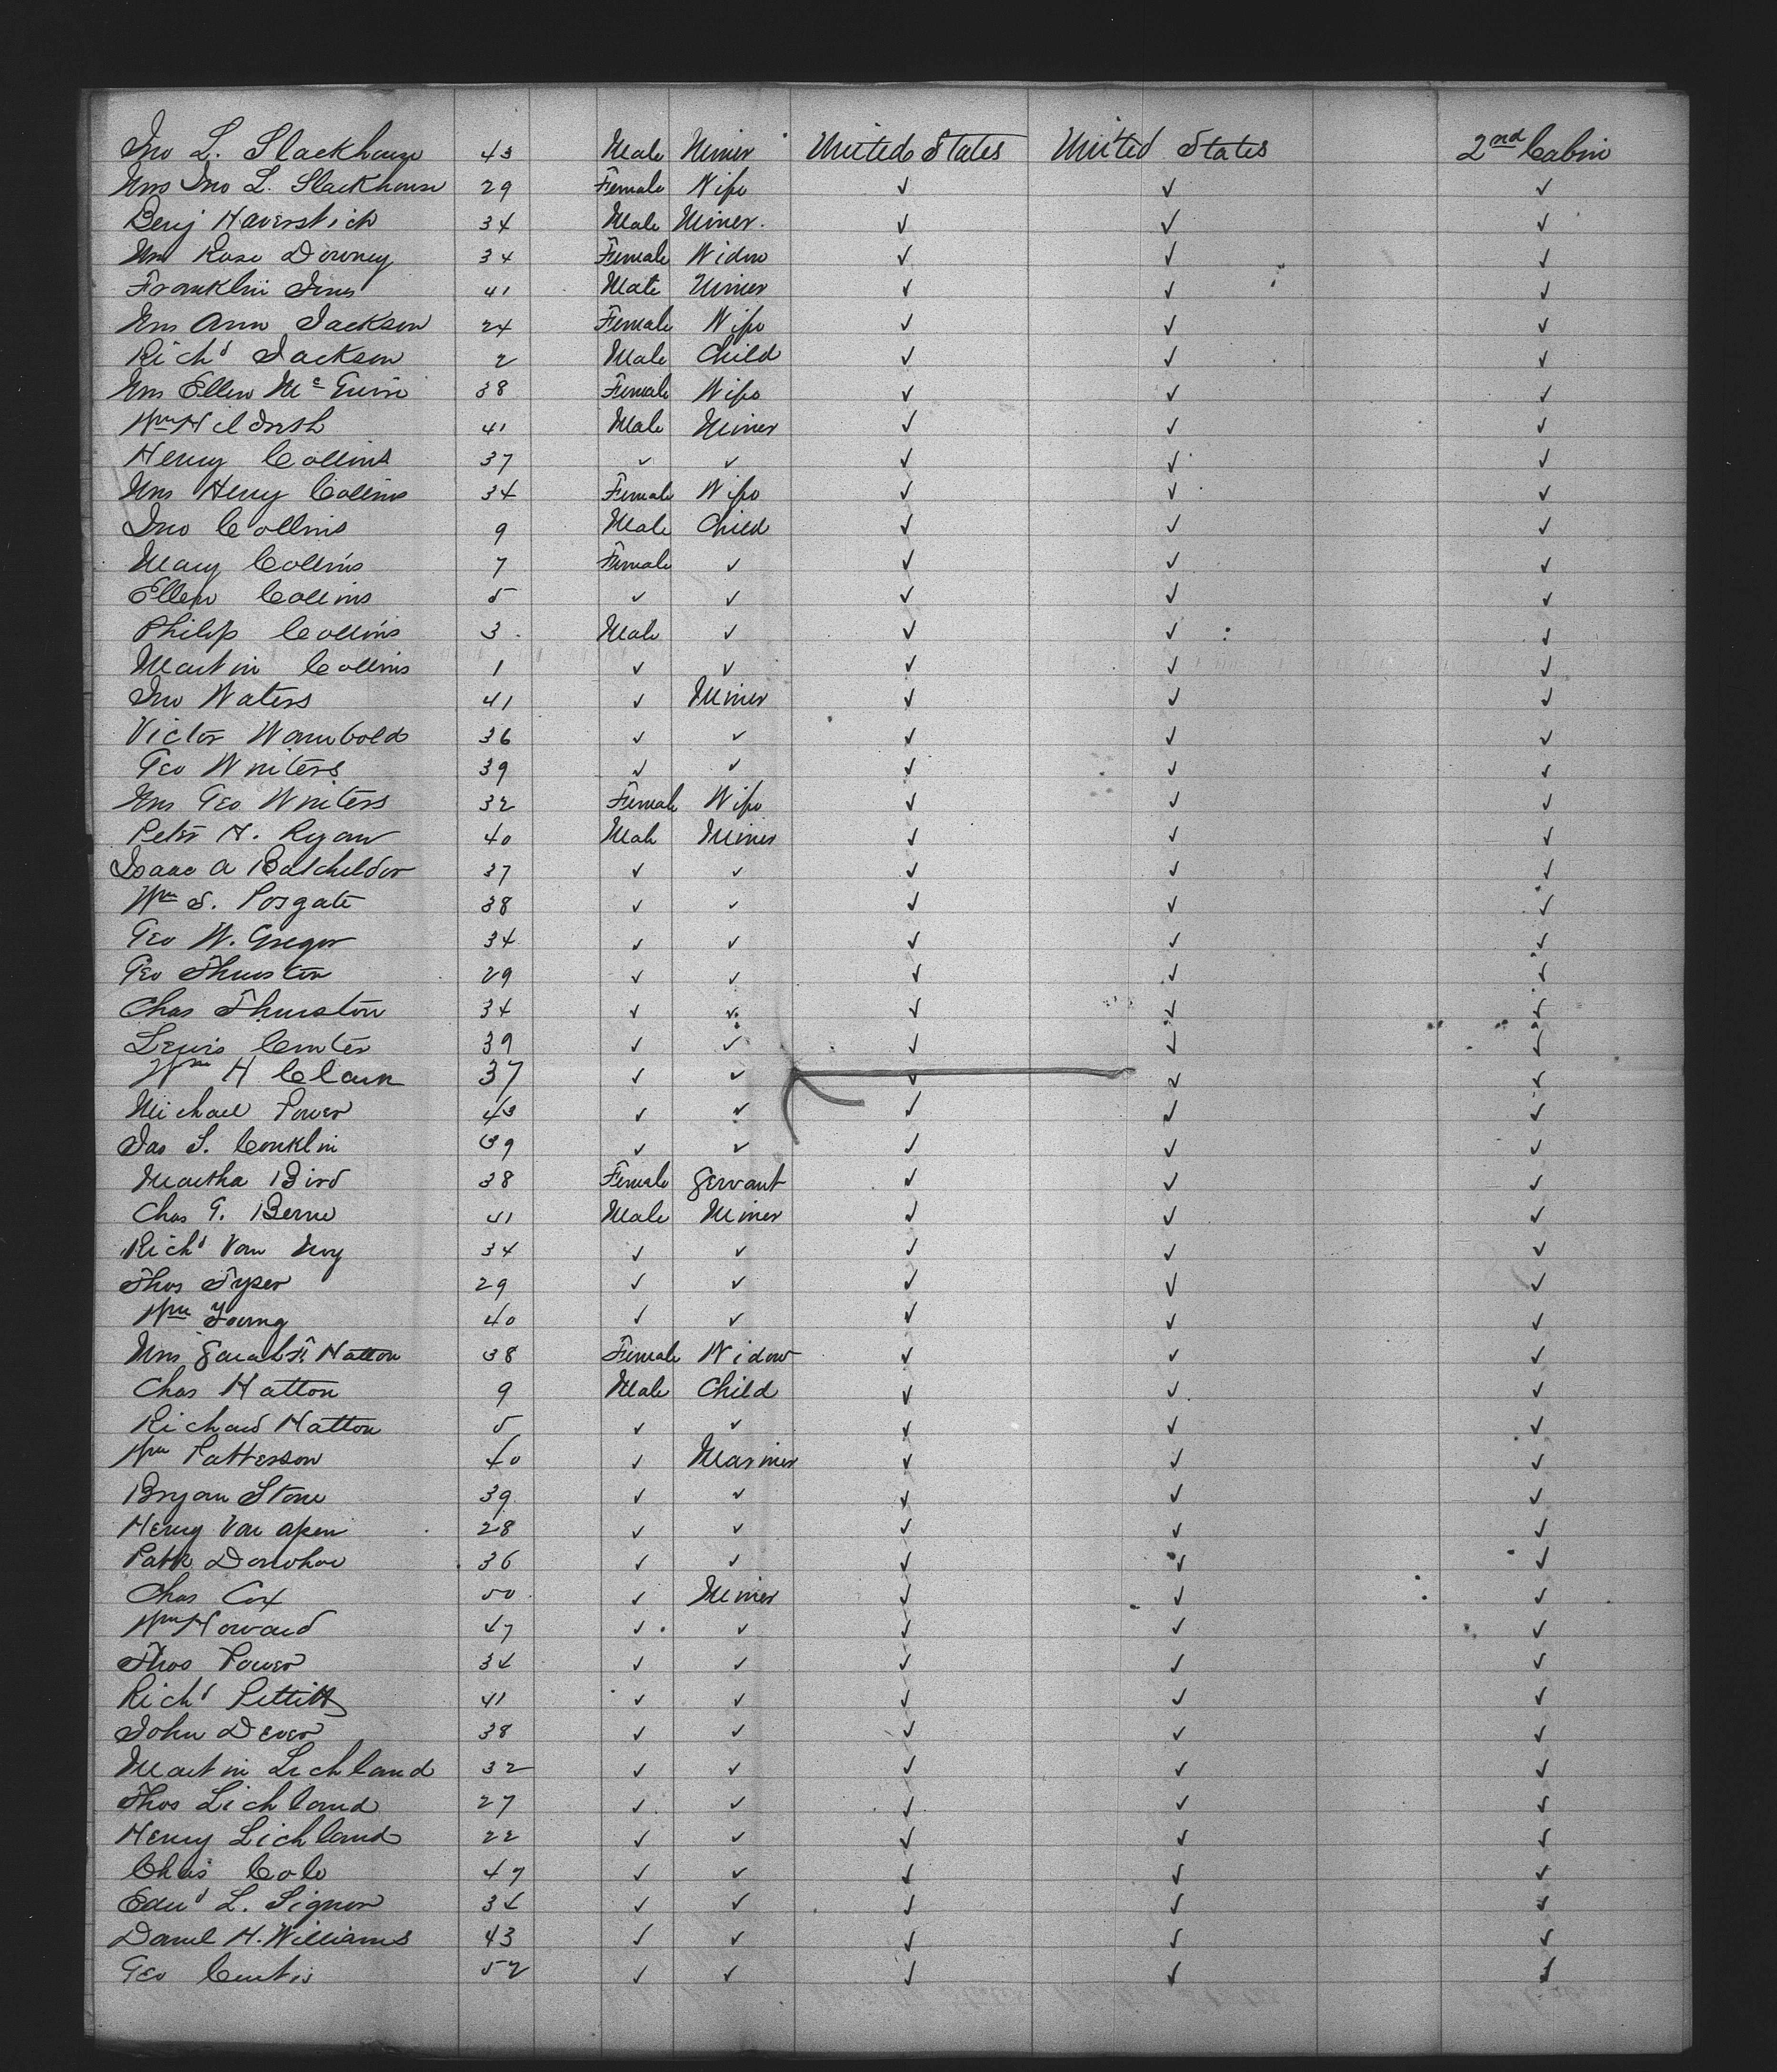 Jno L. Slackhouse 43 Male Miner United States United States 2nd Cabin
Mrs Jno L. Slackhouse 29 Female Wife ✓ ✓ ✓
Benj Haverstich 34 Male Miner. ✓ ✓ ✓
Mrs Rose Downey 34 Female Widow ✓ ✓ ✓
Franklin 41 Male Miner ✓ ✓ ✓
Mrs Ann Jackson 24 Female Wife ✓ ✓ ✓
Richd Jackson 2 Male Child ✓ ✓ ✓
Mrs Ellen Mc 38 Female Wife ✓ ✓ ✓
Wm Hildreth 41 Male Miner ✓ ✓ ✓
Henry Collins 37 ✓ ✓ ✓ ✓ ✓
Mrs Henry Collins 34 Female Wife ✓ ✓ ✓
Jno Collins 9 Male Child ✓ ✓ ✓
Mary Collins 7 Female ✓ ✓ ✓ ✓
Ellen Collins 5 ✓ ✓ ✓ ✓ ✓
Philip Collins 3 Male ✓ ✓ ✓ ✓
Martin Collins 1 ✓ ✓ ✓ ✓ ✓
Jno Waters 41 ✓ Miner ✓ ✓ ✓
Victor Wambold 36 ✓ ✓ ✓ ✓ ✓
Geo Winters 39 ✓ ✓ ✓ ✓ ✓
Mrs Geo Winters 32 Female Wife ✓ ✓ ✓
Peter H. Ryan 40 Male Miner ✓ ✓ ✓
Isaac A Batchelder 37 ✓ ✓ ✓ ✓ ✓
Wm S. Posgate 38 ✓ ✓ ✓ ✓ ✓
Geo W. Gregor 34 ✓ ✓ ✓ ✓ ✓
Geo Thurston 29 ✓ ✓ ✓ ✓ ✓
Chas Thurston 34 ✓ ✓ ✓ ✓ ✓
Lewis 39 ✓ ✓ ✓ ✓ ✓
Wm H Clark 37 ✓ ✓ ✓ ✓ ✓
Michael Power 43 ✓ ✓ ✓ ✓ ✓
Jas S. Conklin 39 ✓ ✓ ✓ ✓ ✓
Martha Bird 38 Female Servant ✓ ✓ ✓
Chas G. Berne 41 Male Miner ✓ ✓ ✓
Richd Van Noy 34 ✓ ✓ ✓ ✓ ✓
Thos Tyser 29 ✓ ✓ ✓ ✓ ✓
Wm Young 40 ✓ ✓ ✓ ✓ ✓
Mrs Sarah F. Hatton 38 Female Widow ✓ ✓ ✓
Chas Hatton 9 Male Child ✓ ✓ ✓
Richard Hatton 5 ✓ ✓ ✓ ✓ ✓
Wm Patterson 40 ✓ Mariner ✓ ✓ ✓
Bryan Stone 39 ✓ ✓ ✓ ✓ ✓
Henry Van Apen 28 ✓ ✓ ✓ ✓ ✓
Patk Donohoe 36 ✓ ✓ ✓ ✓ ✓
Chas Cox 50 ✓ Miner ✓ ✓ ✓
Wm Howard 47 ✓ ✓ ✓ ✓ ✓
Thos Power 34 ✓ ✓ ✓ ✓ ✓
Richd Pettitt 41 ✓ ✓ ✓ ✓ ✓
John Dever 38 ✓ ✓ ✓ ✓ ✓
Martin Lichland 32 ✓ ✓ ✓ ✓ ✓
Thos Lichland 27 ✓ ✓ ✓ ✓ ✓
Henry Lichland 22 ✓ ✓ ✓ ✓ ✓
Chas Cole 47 ✓ ✓ ✓ ✓ ✓
Edwd L. Signor 34 ✓ ✓ ✓ ✓ ✓
Danel H. Williams 43 ✓ ✓ ✓ ✓ ✓
Geo Curtis 52 ✓ ✓ ✓ ✓ ✓